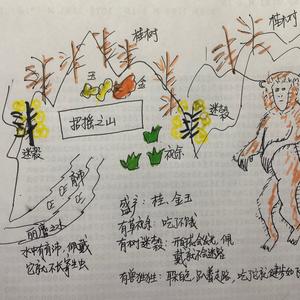 桂树
桂树
玉
金
招摇之山
迷榖
迷榖
祝馀
育沛
丽𪊨之水
水中有育沛，佩戴
它就不长寄生虫
盛产：桂、金玉
有草祝馀：吃了不饿
有树迷榖：开的花会发光，佩
戴就不会迷路
有兽狌狌：白色，趴着走路，吃了它